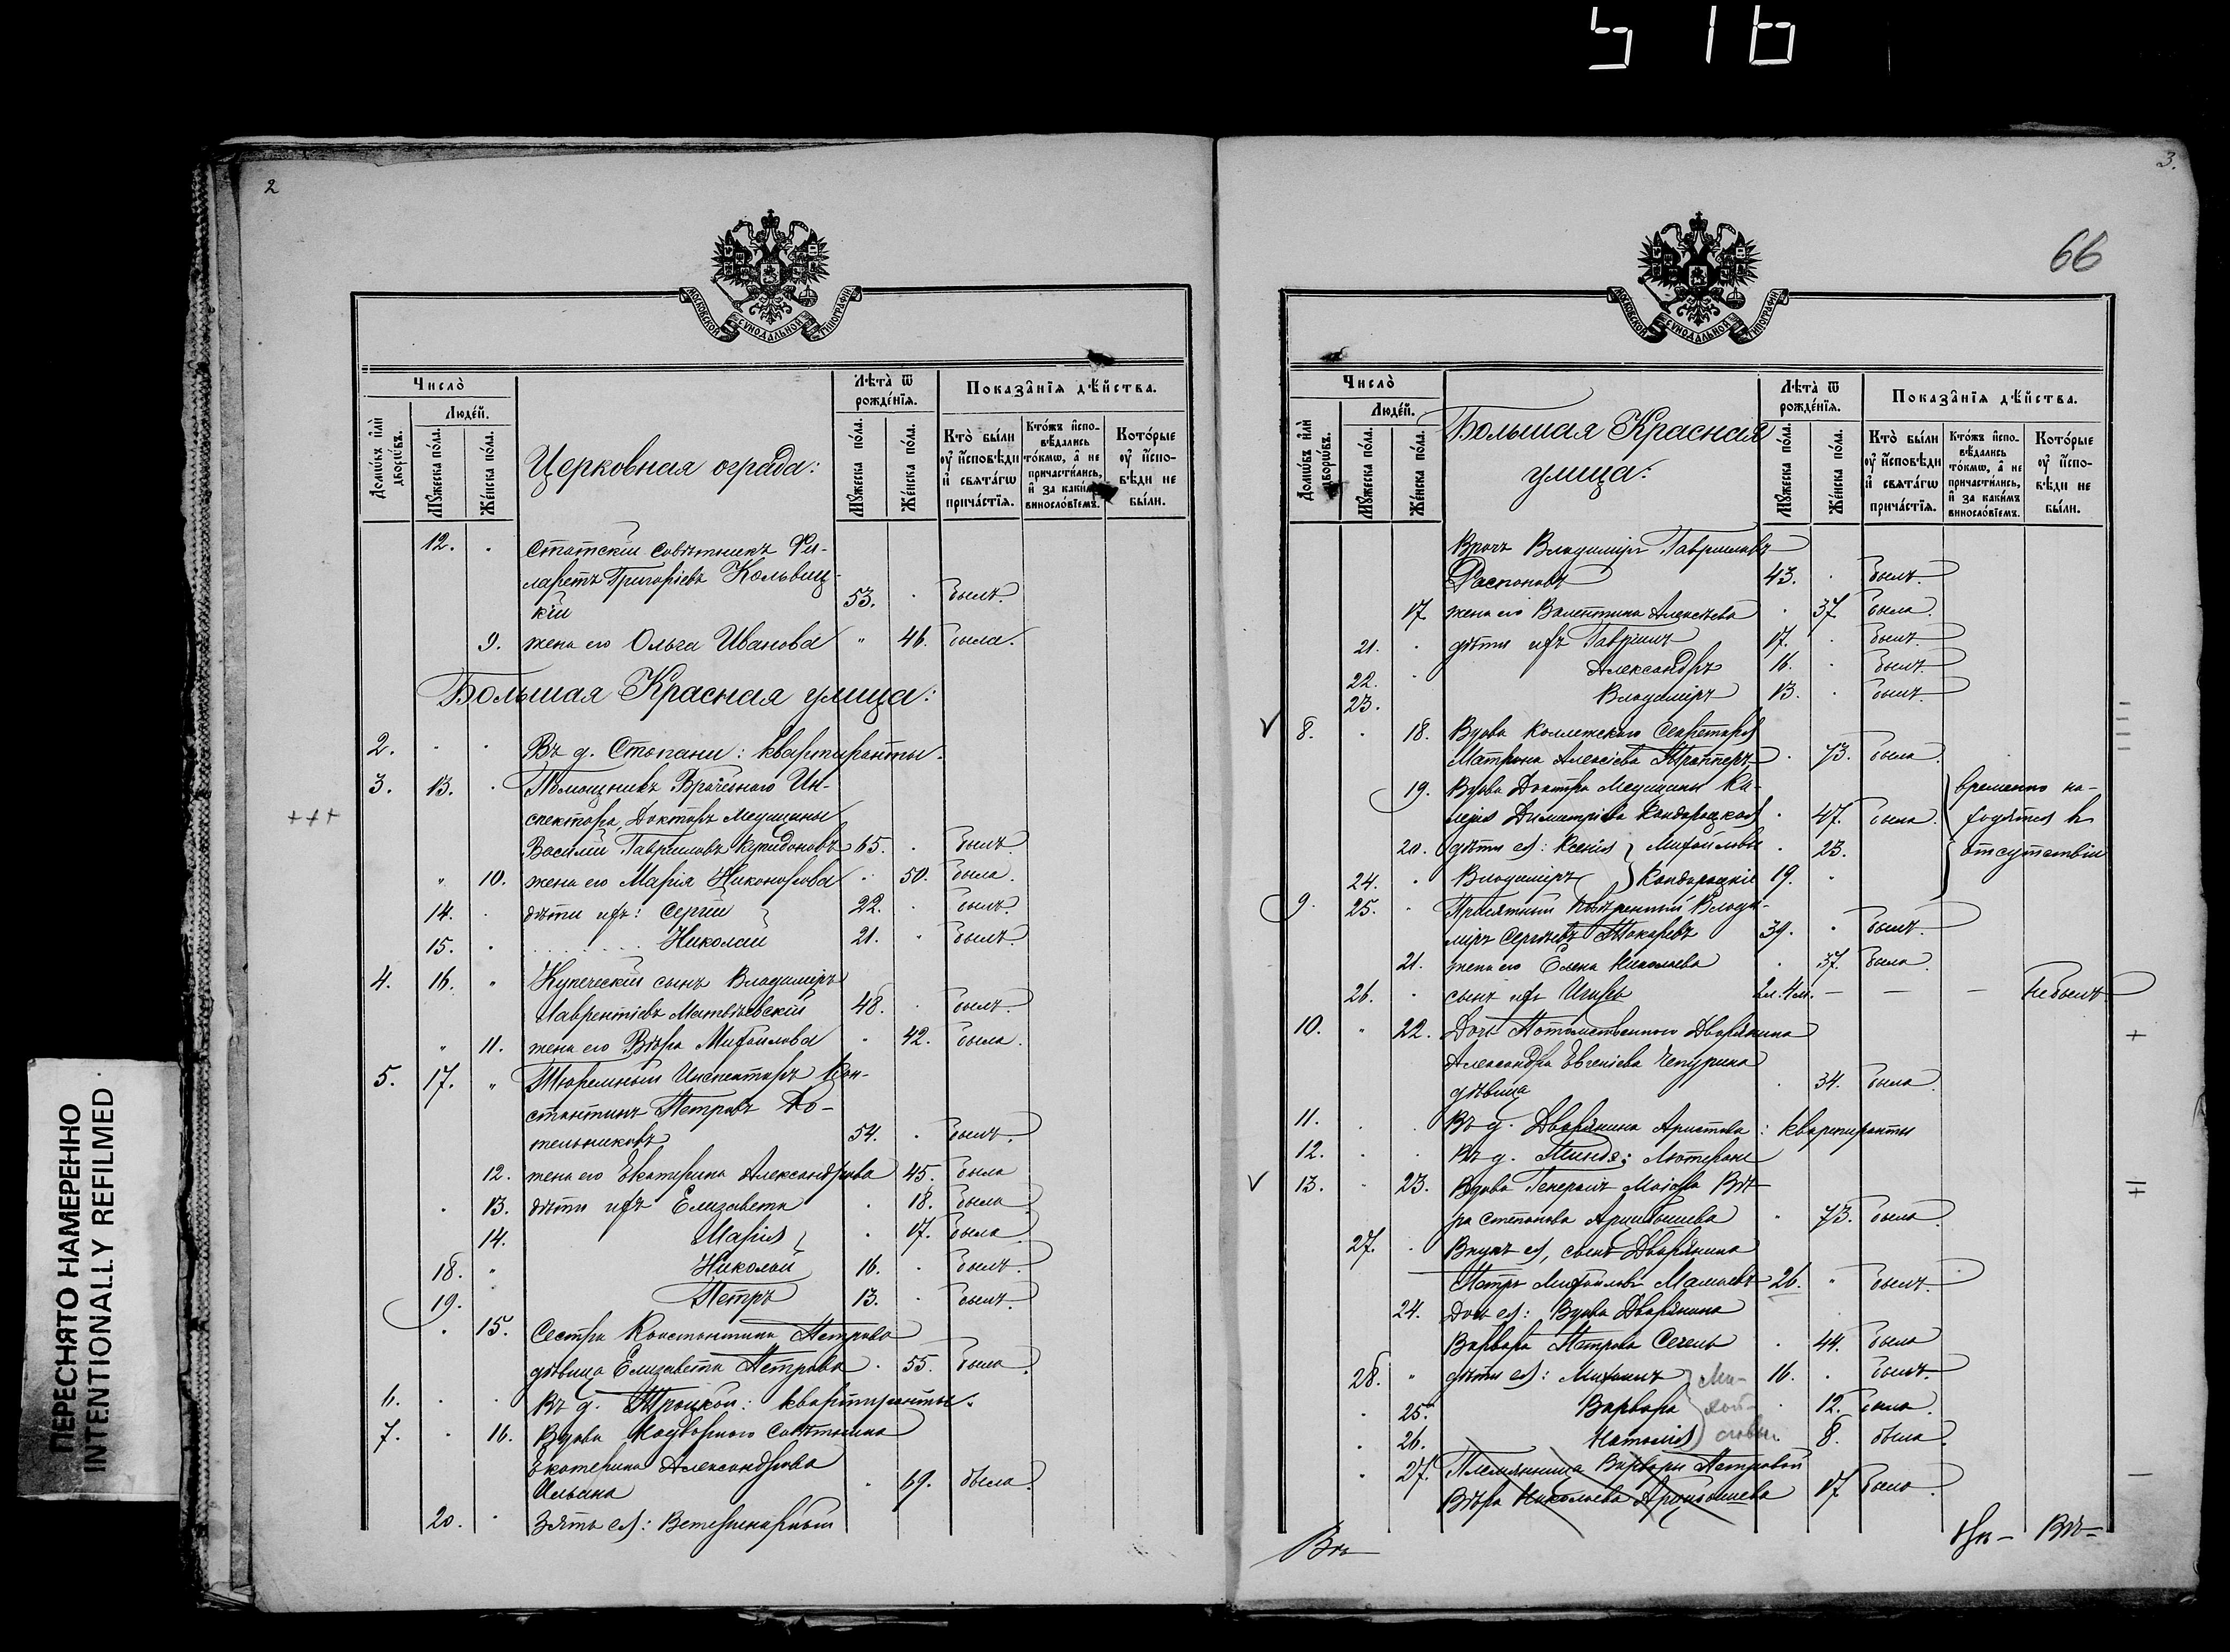 516
2
МОСКОВСКОЙ СѴНОДАЛЬНОЙ ТИПОГРАФІИ
Число̀
Домѡ́въ и҆лѝ дворѡ́въ.
Люде́й.
Мꙋ́жеска по́ла.
Же́нска по́ла.
Церковная ограда:
Лѣ́та ѿ рожде́нїѧ.
Мꙋ́жеска по́ла.
Же́нска по́ла.
Показа̑нїѧ дѣ́йства.
Кто̀ бы́ли оу҆ и҆́сповѣди и҆ свѧта́гѡ прича́стїѧ.
Кто́жъ и҆спо- вѣ́дались то́кмѡ, а҆ не причасти́лись, и҆ за каки́мъ виносло́вїемъ.
Кото́рые оу҆ и҆́спо- вѣди не бы́ли.
12. Статскій совѣтникъ Фи-
ларетъ Григоріевъ Кольвиц-
кій 53. былъ.
9. жена его Ольга Иванова " 46. была.
Большая Красная улица:
2. Въ д. Стопани: квартиранты.
3. 13. Помощникъ Врачебнаго Ин-
+++ спектора, Докторъ Медицины
Василій Гавриловъ Купидоновъ 65. былъ.
" 10. жена его Марія Никонорова 50. была.
14. дѣти ихъ: Сергій 22. былъ.
15. Николай 21. былъ.
4. 16. " Купеческій сынъ Владиміръ
Лаврентіевъ Матвѣевскій 48. былъ.
" 11. жена его Вѣра Михайлова 42. была.
5. 17. " Тюремный Инспекторъ Кон-
стантинъ Петровъ Ко-
тельниковъ 54. былъ.
12. жена его Екатерина Александрова 45. была
13. дѣти ихъ Елизавета 18. была
14. Марія 17. была
18. " Николай 16. былъ.
19. Петръ 13. былъ.
15. Сестра Константина Петрова
дѣвица Елизавета Петрова 55. была.
6. Въ д. Троцкой: квартиранты.
7. 16. Вдова Надворнаго Совѣтника
Екатерина Александрова
Ильина 69. была.
20. Зять ея: Ветеринарный
3.
66
МОСКОВСКОЙ СѴНОДАЛЬНОЙ ТИПОГРАФІИ
Число̀
Домѡ́въ и҆лѝ дворѡ́въ.
Люде́й.
Мꙋ́жеска по́ла.
Же́нска по́ла.
Большая Красная
улица:
Лѣ́та ѿ рожде́нїѧ.
Мꙋ́жеска по́ла.
Же́нска по́ла.
Показа̑нїѧ дѣ́йства.
Кто̀ бы́ли оу҆ и҆́сповѣди и҆ свѧта́гѡ прича́стїѧ.
Кто́жъ и҆спо- вѣ́дались то́кмѡ, а҆ не причасти́лись, и҆ за каки́мъ виносло́вїемъ.
Кото́рые оу҆ и҆́спо- вѣди не бы́ли.
Врачъ Владиміръ Гавриловъ
Распоповъ 43. былъ.
17 жена его Валентина Алексѣева 37 была.
21. дѣти ихъ Гавріилъ 17. былъ.
22. Александръ 16. былъ.
23. Владиміръ 13. былъ.
8. 18. Вдова Коллежскаго Секретаря
Матрона Алексіева 73. была.
19. Вдова Доктора Медицины Ка-
лерія Димитріева Кандарацкая 47. была. временно на-
20. дѣти ея: Ксенія Михайловы 23. ходятся въ
24. Владиміръ Кандарацкіе 19. отсутствіи
9. 25. Присяжный Повѣренный Влади-
міръ Сергѣевъ Токаревъ 39. былъ.
21. жена его Елена Николаева 37. была.
26. сынъ ихъ Игорь 2л. 4м. — — — не былъ
10. " 22. Дочь Потомственнаго Дворянина
Александра Евгеніева Чепурина
дѣвица 34. была.
11. Въ д. Дворянина Аристова: квартиранты
12. Въ д. : Лютеране
13. 23. Вдова Генералъ Маіора Вѣ-
ра Степанова Арцыбышева 73. была.
27. Внукъ ея, сынъ Дворянина
Петръ Михайловъ Мамаевъ 26. былъ.
24. Дочь ея: Вдова Дворянина
Варвара Петрова 44. была
28. дѣти ея: Михаилъ Ми- 16. былъ.
25. Варвара хай- 12. была.
26. Наталія ловы. 8. была.
27. Племянница Варвары Петровой
Вѣра Николаева Арцыбышева 17 была.
ПЕРЕСНЯТО НАМЕРЕННО
INTENTIONALLY REFILMED.